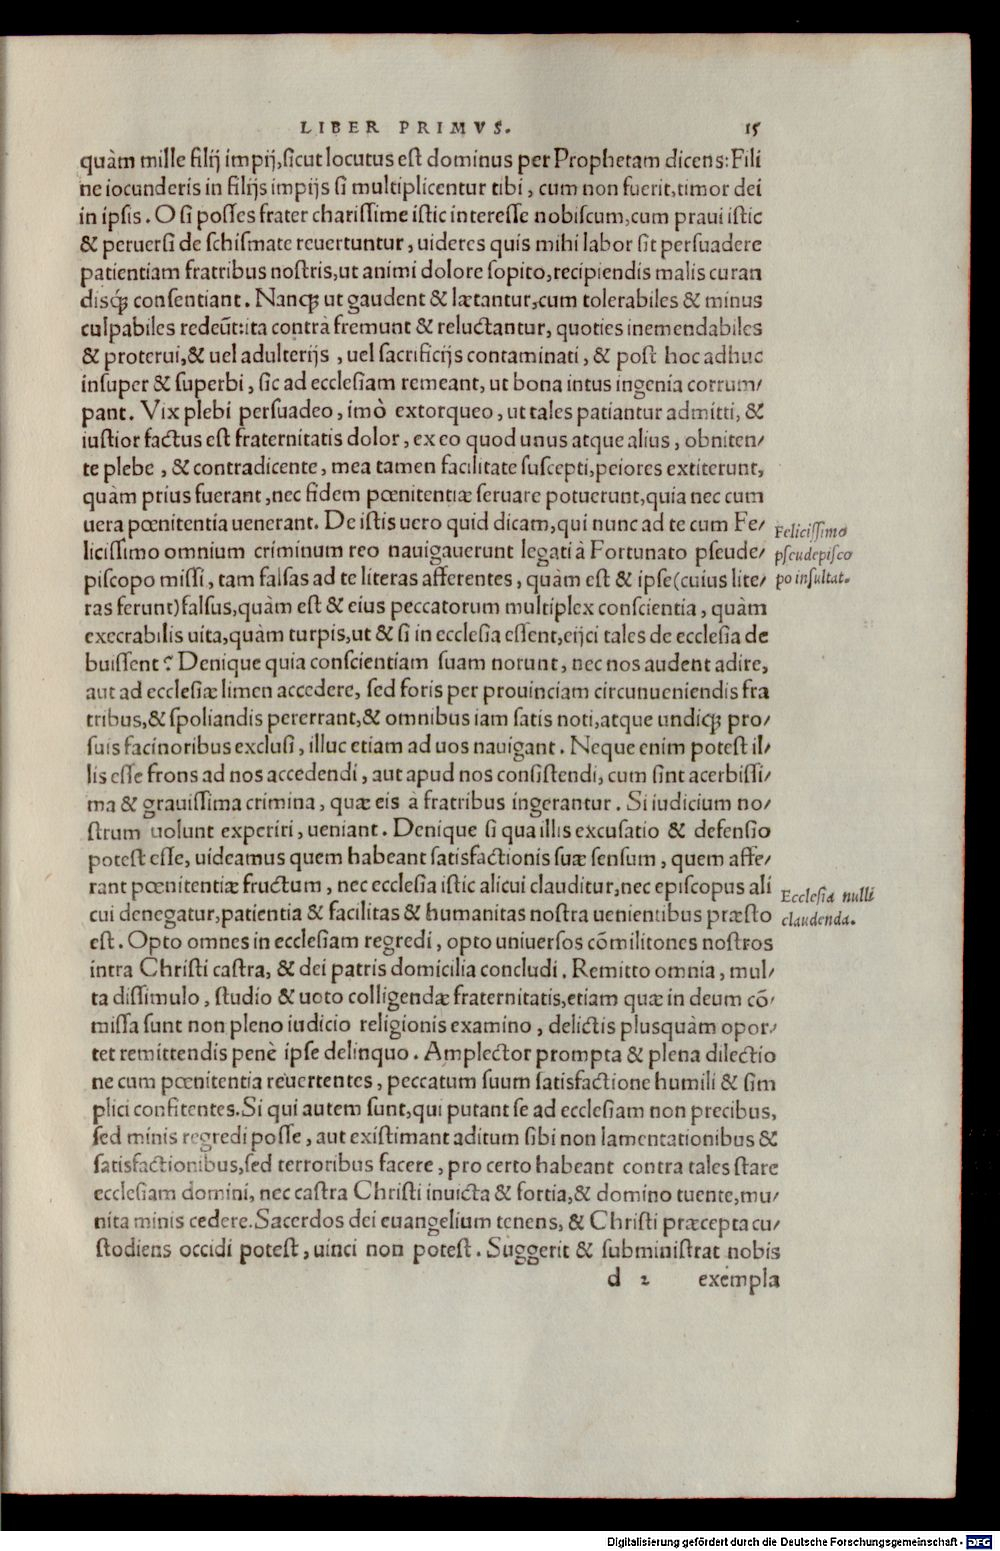 LIBER PRIMVS. 15
quàm mille filij impij,sicut locutus est dominus per Prophetam dicens:Fili
ne iocunderis in filijs impijs si multiplicentur tibi, cum non fuerit,timor dei
in ipsis. O si posses frater charissime istic interesse nobiscum,cum praui istic
& peruersi de schismate reuertuntur, uideres quis mihi labor sit persuadere
patientiam fratribus nostris,ut animi dolore sopito,recipiendis malis curan
disq́ꝫ consentiant. Nancꝫ ut gaudent & lætantur,cum tolerabiles & minus
culpabiles redeũt:ita contrà fremunt & reluctantur, quoties inemendabiles
& proterui,& uel adulterijs, uel sacrificijs contaminati, & post hoc adhuc
insuper & superbi, sic ad ecclesiam remeant, ut bona intus ingenia corrum/
pant. Vix plebi persuadeo, imò extorqueo, ut tales patiantur admitti, &
iustior factus est fraternitatis dolor, ex eo quod unus atque alius, obniten/
te plebe, & contradicente, mea tamen facilitate suscepti,peiores extiterunt,
quàm prius fuerant,nec fidem pœnitentiæ seruare potuerunt,quia nec cum
uera pœnitentia uenerant. De istis uero quid dicam,qui nunc ad te cum Fe/
licissimo omnium criminum reo nauigauerunt legati à Fortunato pseude/
piscopo missi, tam falsas ad te literas afferentes, quàm est & ipse(cuius lite/
ras ferunt)falsus,quàm est & eius peccatorum multiplex conscientia, quàm
execrabilis uita,quàm turpis,ut & si in ecclesia essent,eijci tales de ecclesia de
buissent? Denique quia conscientiam suam norunt, nec nos audent adire,
aut ad ecclesiæ limen accedere, sed foris per prouinciam circunueniendis fra
tribus,& spoliandis pererrant,& omnibus iam satis noti,atque undicꝫ pro/
suis facinoribus exclusi, illuc etiam ad uos nauigant. Neque enim potest il/
lis esse frons ad nos accedendi, aut apud nos consistendi, cum sint acerbissi/
ma & grauissima crimina, quæ eis à fratribus ingerantur. Si iudicium no/
strum uolunt experiri, ueniant. Denique si qua illis excusatio & defensio
potest esse, uideamus quem habeant satisfactionis suæ sensum, quem affe/
rant pœnitentiæ fructum, nec ecclesia istic alicui clauditur,nec episcopus ali
cui denegatur,patientia & facilitas & humanitas nostra uenientibus præsto
est. Opto omnes in ecclesiam regredi, opto uniuersos cõmilitones nostros
intra Christi castra, & dei patris domicilia concludi. Remitto omnia, mul/
ta dissimulo, studio & uoto colligendæ fraternitatis,etiam quæ in deum cõ/
missa sunt non pleno iudicio religionis examino, delictis plusquàm opor/
tet remittendis penè ipse delinquo. Amplector prompta & plena dilectio
ne cum pœnitentia reuertentes, peccatum suum satisfactione humili & sim
plici confitentes.Si qui autem sunt,qui putant se ad ecclesiam non precibus,
sed minis regredi posse, aut existimant aditum sibi non lamentationibus &
satisfactionibus,sed terroribus facere, pro certo habeant contra tales stare
ecclesiam domini, nec castra Christi inuicta & fortia,& domino tuente,mu/
nita minis cedere.Sacerdos dei euangelium tenens, & Christi præcepta cu/
stodiens occidi potest, uinci non potest. Suggerit & subministrat nobis
d 2 exempla
Felicissimo
pseudepisco
po insultat.
Ecclesia nulli
claudenda.
Digitalisierung gefördert durch die Deutsche Forschungsgemeinschaft - DFG